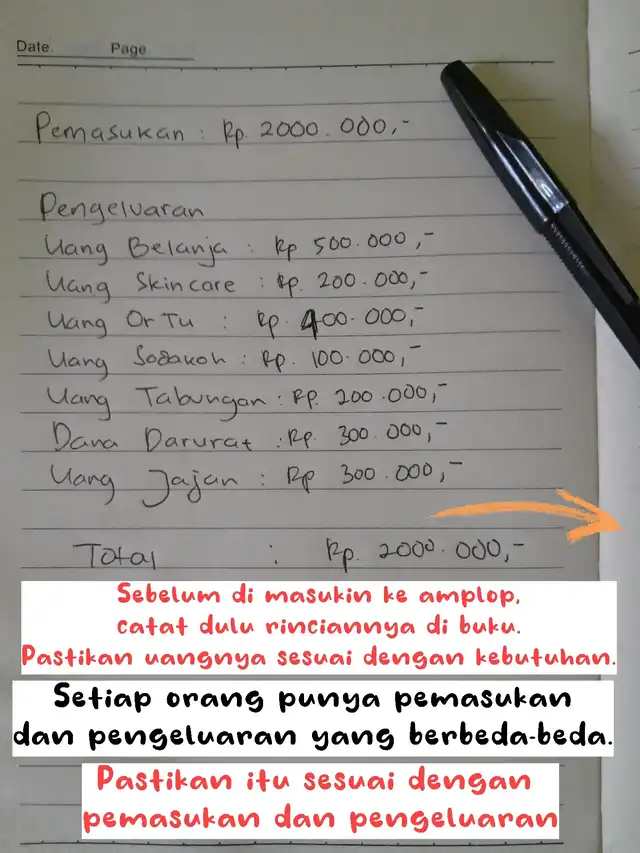 Date. Page.
Pemasukan : Rp. 2000.000,-
Pengeluaran
Uang Belanja : Rp 500.000,-
Uang Skincare : Rp. 200.000,-
Uang Or Tu : Rp. 400.000,-
Uang Sodakoh : Rp. 100.000,-
Uang Tabungan : Rp. 200.000,-
Dana Darurat : Rp. 300.000,-
Uang Jajan : Rp 300.000,-
Total : Rp. 2000.000,-
Sebelum di masukin ke amplop,
catat dulu rinciannya di buku.
Pastikan uangnya sesuai dengan kebutuhan.
Setiap orang punya pemasukan
dan pengeluaran yang berbeda-beda.
Pastikan itu sesuai dengan
pemasukan dan pengeluaran